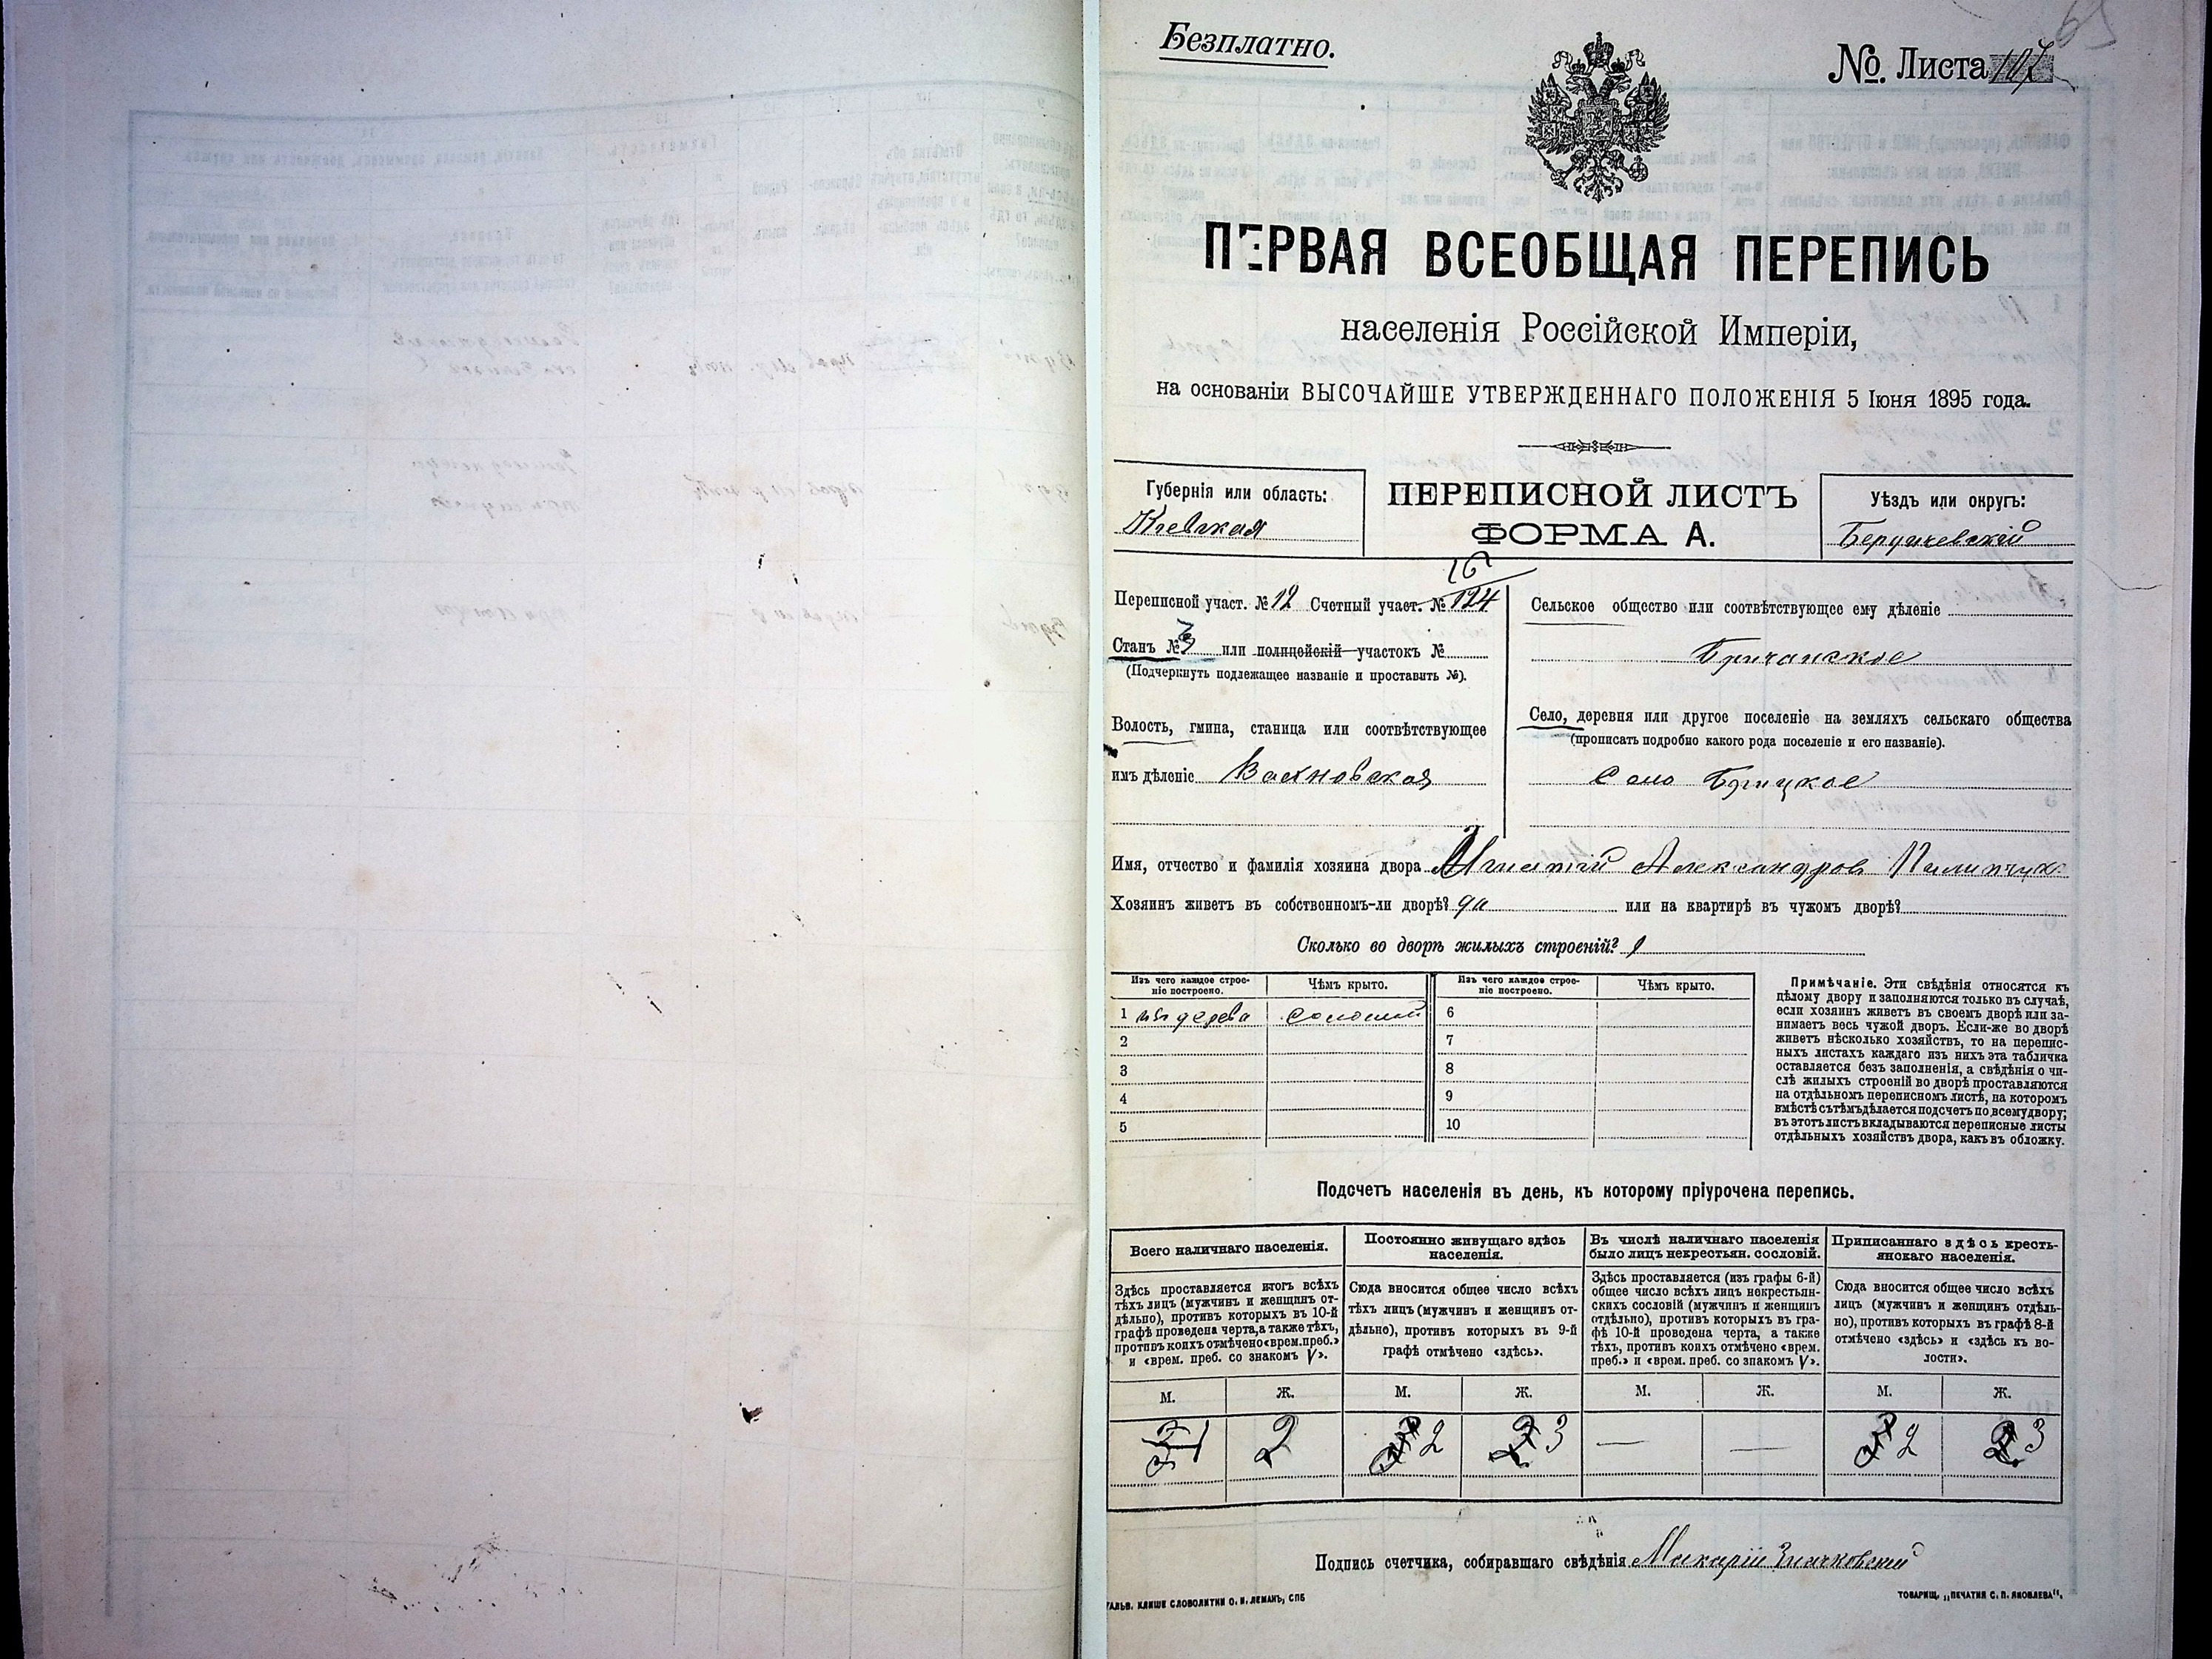 Безплатно.
№. Листа 107
65
ПЕРВАЯ ВСЕОБЩАЯ ПЕРЕПИСЬ
населенія Россійской Имперіи,
на основаніи ВЫСОЧАЙШЕ УТВЕРЖДЕННАГО ПОЛОЖЕНІЯ 5 Іюня 1895 года.
Губернія или область:
Кіевская
ПЕРЕПИСНОЙ ЛИСТЪ
ФОРМА А.
Уѣздъ или округъ:
Бердичевскій
Переписной участ. № 12 Счетный участ. № 124
Станъ № 3 или полицейскій участокъ №
(Подчеркнуть подлежащее названіе и проставить №).
Волость, гмина, станица или соотвѣтствующее
имъ дѣленіе Вахновская
Сельское общество или соотвѣтствующее ему дѣленіе
Село, деревня или другое поселеніе на земляхъ сельскаго общества
(прописать подробно какого рода поселеніе и его названіе).
Село Брицкое
Имя, отчество и фамилія хозяина двора Игнатій Александров Пилипчук
Хозяинъ живетъ въ собственномъ-ли дворѣ? да или на квартирѣ въ чужомъ дворѣ?
Сколько во дворѣ жилыхъ строеній? 1
Изъ чего каждое строе-
ніе построено.
Чѣмъ крыто.
Изъ чего каждое строе-
ніе построено.
Чѣмъ крыто.
1 изъ дерева соломой 6
2 7
3 8
4 9
5 10
Примѣчаніе. Эти свѣдѣнія относятся къ
цѣлому двору и заполняются только въ случаѣ,
если хозяинъ живетъ въ своемъ дворѣ или за-
нимаетъ весь чужой дворъ. Если-же во дворѣ
живетъ нѣсколько хозяйствъ, то на перепис-
ныхъ листахъ каждаго изъ нихъ эта табличка
оставляется безъ заполненія, а свѣдѣнія о чи-
слѣ жилыхъ строеній во дворѣ проставляются
на отдѣльномъ переписномъ листѣ, на которомъ
вмѣстѣ съ тѣмъ дѣлается подсчетъ по всему двору;
въ этотъ листъ вкладываются переписные листы
отдѣльныхъ хозяйствъ двора, какъ въ обложку.
Подсчетъ населенія въ день, къ которому пріурочена перепись.
Всего наличнаго населенія.
Здѣсь проставляется итогъ всѣхъ
тѣхъ лицъ (мужчинъ и женщинъ от-
дѣльно), противъ которыхъ въ 10-й
графѣ проведена черта, а также тѣхъ,
противъ коихъ отмѣчено «врем. преб.»
и «врем. преб. со знакомъ V».
Постоянно живущаго здѣсь
населенія.
Сюда вносится общее число всѣхъ
тѣхъ лицъ (мужчинъ и женщинъ от-
дѣльно), противъ которыхъ въ 9-й
графѣ отмѣчено «здѣсь».
Въ числѣ наличнаго населенія
было лицъ некрестьян. сословій.
Здѣсь проставляется (изъ графы 6-й)
общее число всѣхъ лицъ некрестьян-
скихъ сословій (мужчинъ и женщинъ
отдѣльно), противъ которыхъ въ гра-
фѣ 10-й проведена черта, а также
тѣхъ, противъ коихъ отмѣчено «врем.
преб.» и «врем. преб. со знакомъ V».
Приписаннаго здѣсь кресть-
янскаго населенія.
Сюда вносится общее число всѣхъ
лицъ (мужчинъ и женщинъ отдѣль-
но), противъ которыхъ въ графѣ 8-й
отмѣчено «здѣсь» и «здѣсь къ во-
лости».
М. Ж. М. Ж. М. Ж. М. Ж.
1 2 2 3 — — 2 3
Подпись счетчика, собиравшаго свѣдѣнія Макарій Значковскій
ГАЛЬВ. КЛИШЕ СЛОВОЛИТНИ О. И. ЛЕМАНЪ, СПБ
ТОВАРИЩ. „ПЕЧАТНЯ С. П. ЯКОВЛЕВА".